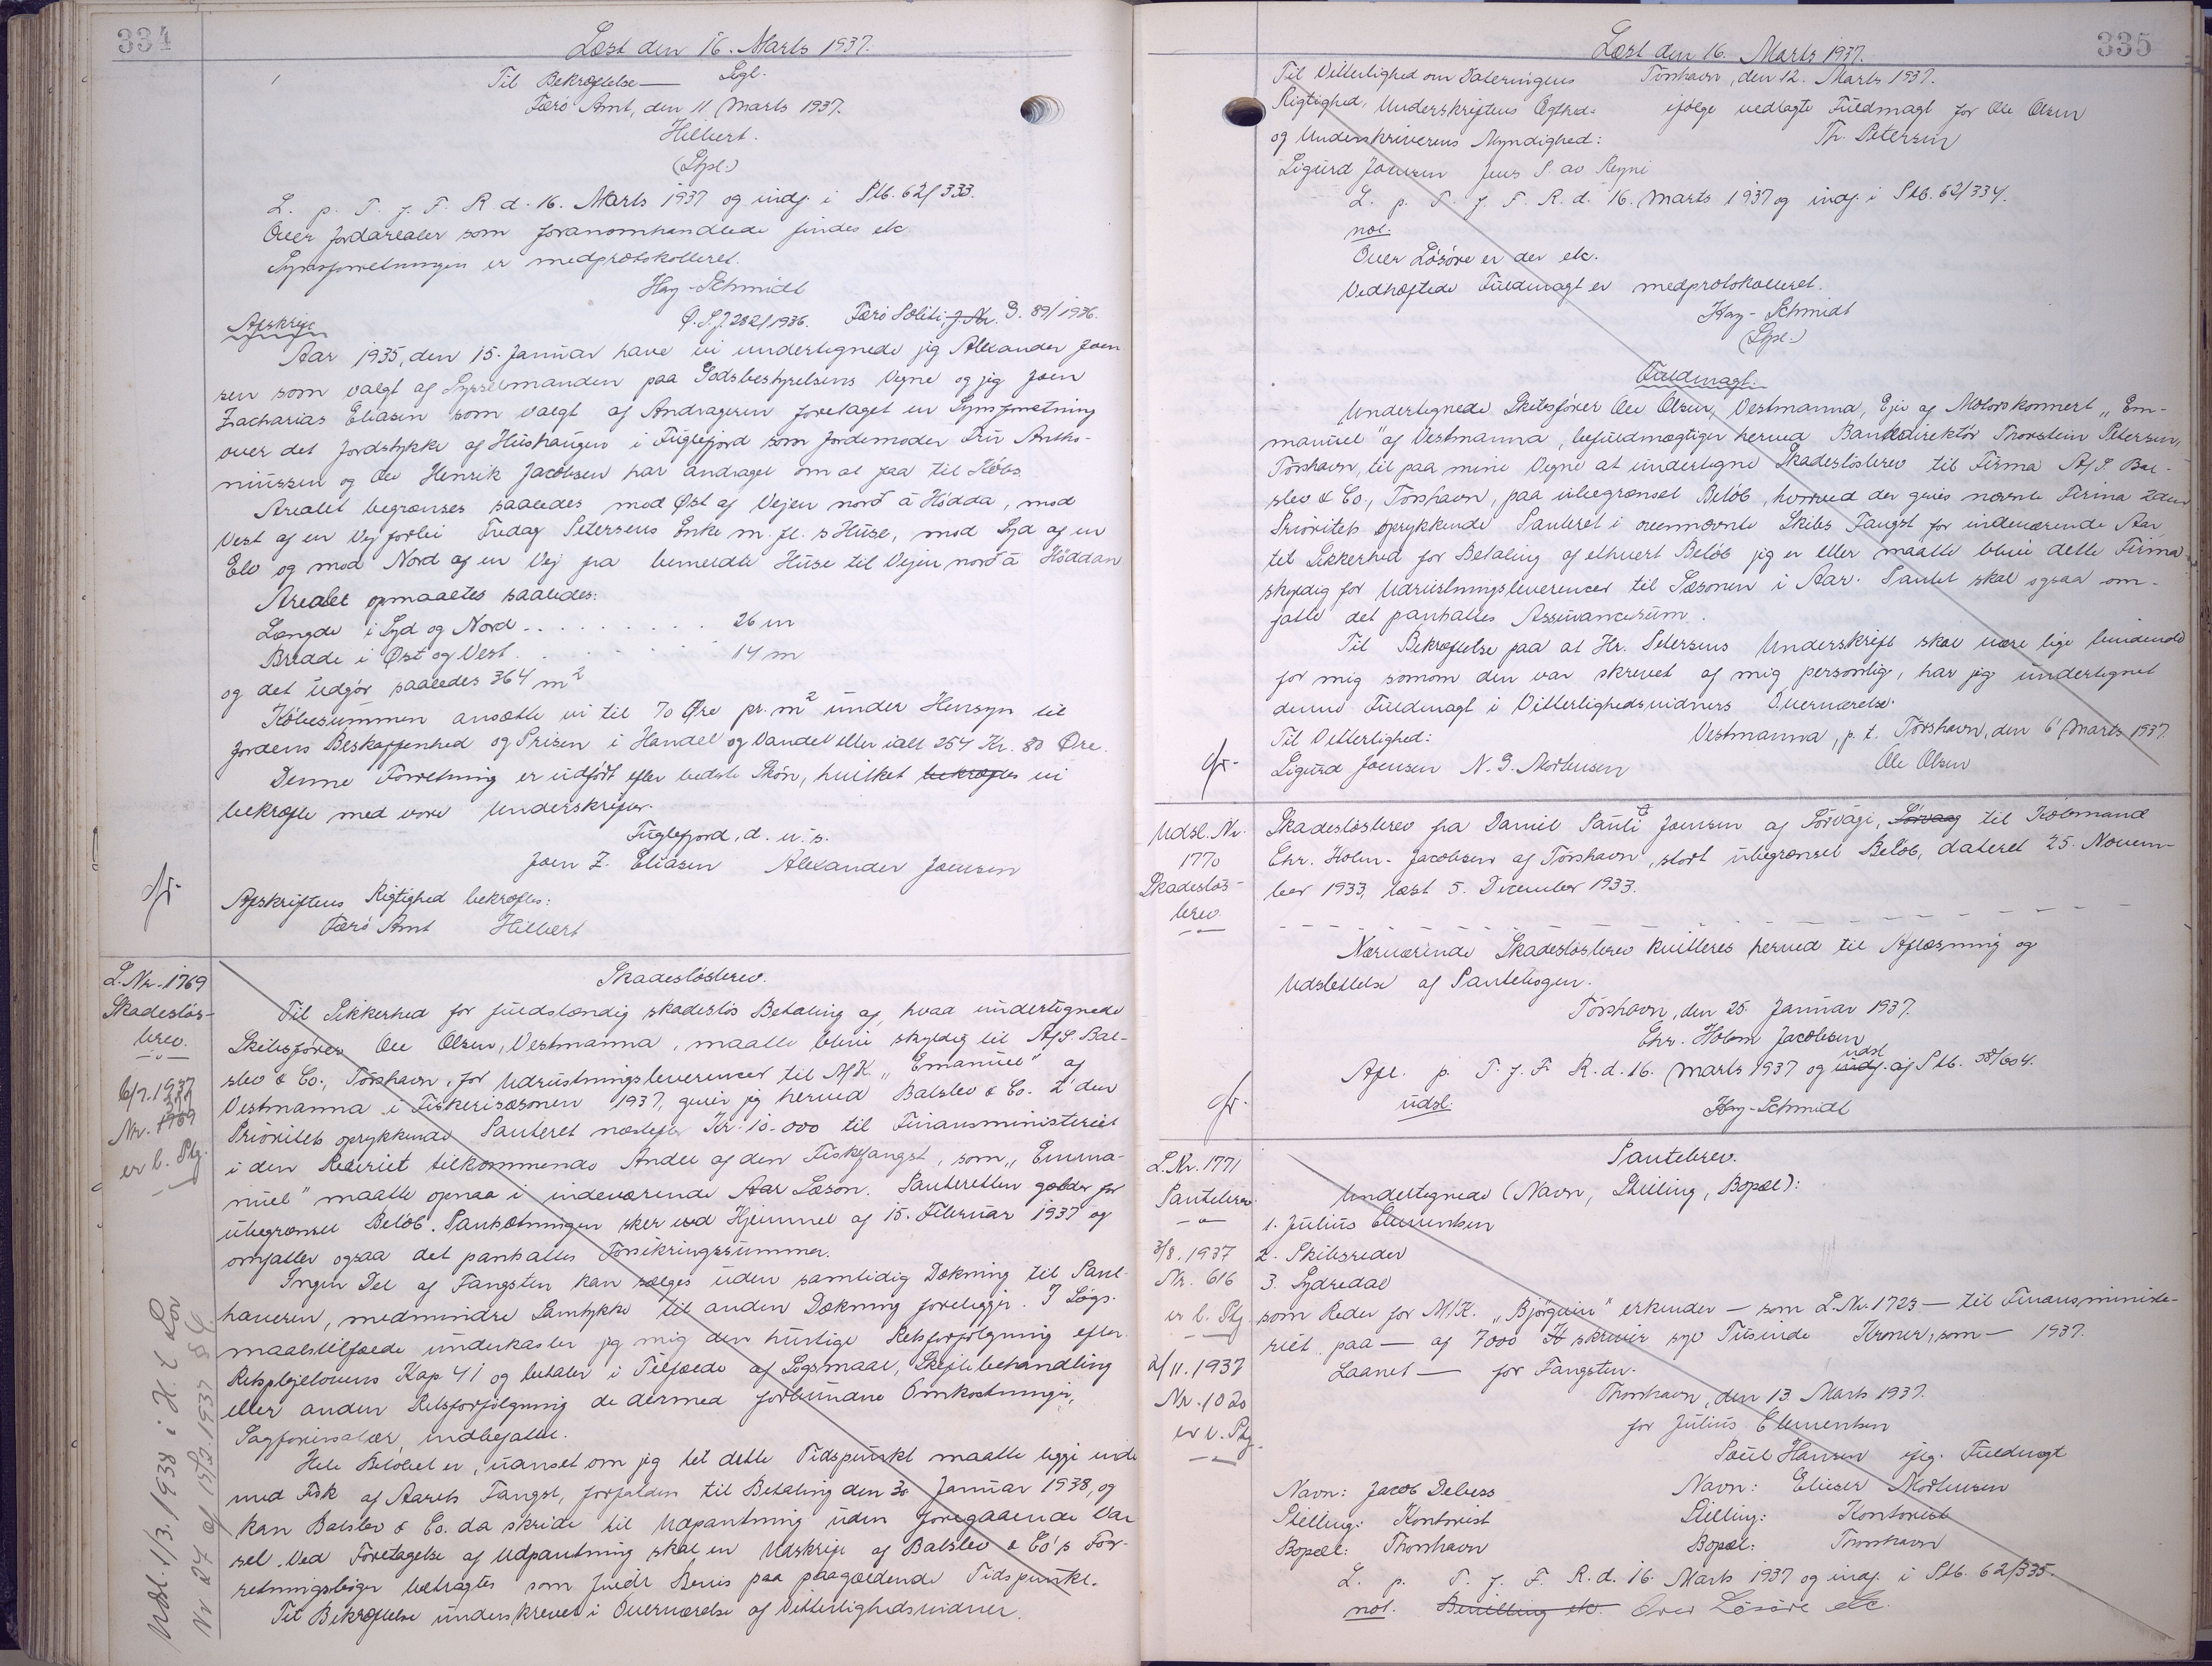 334
Læst den 16. Marts 1937.
Til Bekræftelse — Sgl.
Færø Amt, den 11 Marts 1937.
Hilbert.
(Stpl.)
L. p. T. f. F. R d. 16. Marts 1937 og indf. i Ptb. 62/333.
Over Jordarealer som foranomhandlede findes etc
Synsforretningen er medprotokolleret.
Hay-Schmidt
Afskrift
Ø.L.J. 282/1936. Færö Politi J. Nr. G. 89/1936.
Aar 1935, den 15. Januar have vi undertegnede jeg Alexander Joen
sen som valgt af Sysselmanden paa Godsbestyrelsens Vegne og jeg Joen
Zacharias Eliasen som valgt af Andrageren foretaget en Synsforretning
over det Jordstykke af Húshaugen i Fuglefjord som Jordemoder Fru Antho-
niussen og Ole Henrik Jacobsen har andraget om at faa til Købs
Arealet begrænses saaledes mod Øst af Vejen norð á Hödda, mod
Vest af en Vej forbi Fredag Petersens Enke m. fl. s Huse, mod Syd af en
Elv og mod Nord af en Vej fra bemeldte Huse til Vejen norð á Höddan
Arealet opmaaltes saaledes:
Længde i Syd og Nord . . . . . . . . . 26 m
Bredde i Øst og Vest . . . . . . 14 m
og det udgör saaledes 364 m²
Købesummen ansætte vi til 70 Øre pr. m² under Hensyn til
Jordens Beskaffenhed og Prisen i Handel og Vandel eller ialt 254 Kr. 80 Øre.
Denne Forretning er udfört efter bedste Skön, hvilket bekræftes vi
bekræfte med vore Underskrifter.
Fuglefjord, d. u. s.
Joen Z. Eliasen Alexander Joensen
Afskriftens Rigtighed bekræftes:
Færö Amt Hilbert
L. Nr. 1769
Skadeslös-
brev.
6/7. 1937
Nr.
er b. Ptg.
Skadeslösbrev.
Til Sikkerhed for fuldstændig skadeslös Betaling af, hvaa undertegnede
Skibsförer Ole Olsen, Vestmanna, maatte blive skyldig til A/S. Bal-
slev & Co., Tórshavn, for Udrustningsleverencer til M/K. „Emanuel" af
Vestmanna i Fiskerisæsonen 1937, giver jeg herved Balslev & Co. 2'den
Prioritets oprykkende Panteret næstefter Kr. 10.000 til Finansministeriet
i den Rederiet tilkommende Andel af den Fiskefangst, som „Emma-
nuel" maatte opnaa i indeværende Aar Sæson. Panteretten gælder for
ubegrænset Belöb. Pantsætningen sker ved Hjemmel af 15. Februar 1937 og
omfatter ogsaa det panthaltes Forsikringssummer.
Ingen Del af Fangsten kan sælges uden samtidig Dækning til Pant-
haveren, medmindre Samtykke til anden Dækning foreligger. I Søgs-
maalstilfælde underkaster jeg mig den hurtige Retsforfölgning efter
Retsplejelovens Kap 41 og betaler i Tilfælde af Sögsmaal, Skiftebehandling
eller anden Retsforfölgning de dermed forbundne Omkostninger,
Sagförersalær indbefattet.
Hele Belöbet er, uanset om jeg til dette Tidspunkt maatte ligge inde
med Fisk af Aarets Fangst, forfalden til Betaling den 30 Januar 1938, og
kan Balslev & Co. da skride til Udpantning uden foregaaende Var
sel. Ved Foretagelse af Udpantning skal en Udskrift af Balslev & Co's For-
retningsböger betragtes som fuldt Bevis paa paagældende Tidspunkt.
Til Bekræftelse underskrevet i Overværelse af Vitterlighedsvidner.
Udsl. 1/3. 1938 i H. t Lov
Nr 24 af 15/3. 1937 § 6
335
Læst den 16. Marts 1937.
Til Vitterlighed om Dateringens Tórshavn, den 12. Marts 1937.
Rigtighed, Underskriftens Ægthed ifølge vedlagte Fuldmagt for Ole Olsen
og Underskriverens Myndighed: Th. Petersen
Sigurd Joensen Jens P av Reyni
L. p. T. f. F. R. d. 16. Marts 1937 og indf. i Ptb. 62/334.
not.
Over Lösöre er der etc.
Vedhæftede Fuldmagt er medprotokolleret.
Hay-Schmidt
(Stpl.)
Fuldmagt.
Undertegnede Skibsförer Ole Olsen, Vestmanna, Ejer af Motorskonnert „Em-
manuel" af Vestmanna, befuldmægtiger herved Bankdirektör Thorstein Petersen,
Tórshavn, til paa mine Vegne at undertegne Skadeslösbrev til Firma A/S. Bal-
slev & Co., Tórshavn, paa ubegrænset Belöb, hvorved der gives nævnte Firma 2den
Prioritets oprykkende Panteret i ovennævnte Skibs Fangst for indeværende Aar
til Sikkerhed for Betaling af ethvert Belöb jeg er eller maatte blive dette Firma
skyldig for Udrustningsleverencer til Sæsonen i Aar. Pantet skal ogsaa om-
fatte det panthaltes Assurancesum.
Til Bekræftelse paa at Hr. Petersens Underskrift skal være lige bindende
for mig somom den var skrevet af mig personlig, har jeg undertegnet
denne Fuldmagt i Vitterlighedsvidners Overværelse.
Til Vitterlighed: Vestmanna, p. t. Tórshavn, den 6 Marts 1937.
Sigurd Joensen N. S. Mortensen Ole Olsen
Udsl. Nr.
1770
Skadeslös-
brev.
Skadeslösbrev fra Daniel Pauli Joensen af Sörvági, Sörvaag til Købmand
Chr. Holm-Jacobsen af Tórshavn, stort ubegrænset Belöb, dateret 25. Novem-
ber 1933, læst 5. December 1933.
Nærværende Skadeslösbrev kvitteres herved til Aflæsning og
Udslettelse af Pantebogen.
Tórshavn, den 25. Januar 1937.
Chr. Holm Jacobsen
Afl. p. T. f. F. R. d. 16. Marts 1937 og indf. udsl af Ptb. 58/604.
udsl.
Hay-Schmidt
L. Nr. 1771
Pantebrev
3/8. 1937
Nr. 616
er b. Ptg.
2/11. 1937
Nr. 1020
er b. Ptg.
Pantebrev.
Undertegnede (Navn, Stilling, Bopæl):
1. Júlíus Clementsen
2. Skibsreder
3. Sydredal
som Reder for M/K. „Bjórgvin" erkender — som L. Nr. 1723 — til Finansministe-
riet paa — af 7000 Kr skriver syv Tusinde Kroner, som — 1937.
Laanet — for Fangsten.
Thorshavn, den 13. Marts 1937.
for Júlíus Clementsen
Poul Hansen iflg. Fuldmagt
Navn: Jacob Debess Navn: Elieser Mortensen
Stilling: Kontorist Stilling: Kontorist
Bopæl: Thorshavn Bopæl: Thorshavn
L. p. T. f. F. R. d. 16. Marts 1937 og indf. i Ptb. 62/335.
not. Bevilling etc. Over Lösöre etc.